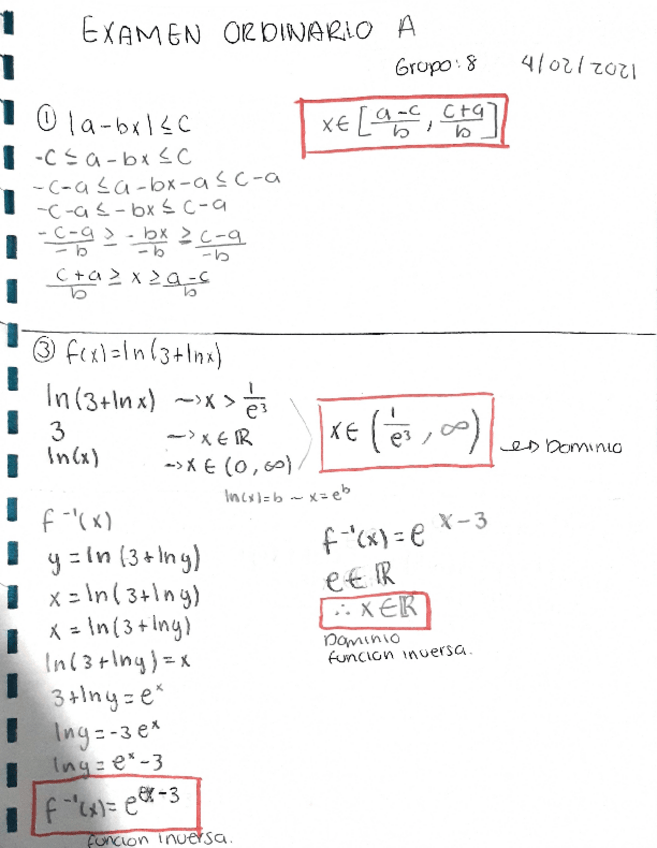 EXAMEN ORDINARIO A
Grupo: 8 4/02/2021
① |a-bx| ≤ c
x∈[a-c/b, c+a/b]
-c ≤ a-bx ≤ c
-c-a ≤ a-bx-a ≤ c-a
-c-a ≤ -bx ≤ c-a
-c-a/-b ≥ -bx/-b ≥ c-a/-b
c+a/b ≥ x ≥ a-c/b
③ f(x)=ln(3+lnx)
ln(3+lnx) → x > 1/e³
3 → x∈ℝ
ln(x) → x∈(0,∞)
x∈(1/e³, ∞) Dominio
ln(x)=b ~ x=e^b
f⁻¹(x)
y = ln(3+lny)
x = ln(3+lny)
x = ln(3+lny)
ln(3+lny)=x
3+lny=e^x
lny=-3e^x
lny=e^x-3
f⁻¹(x)=e^(e^x-3)
funcion inversa.
f⁻¹(x)=e^(x-3)
e∈ℝ
∴ x∈ℝ
Dominio
funcion inversa.